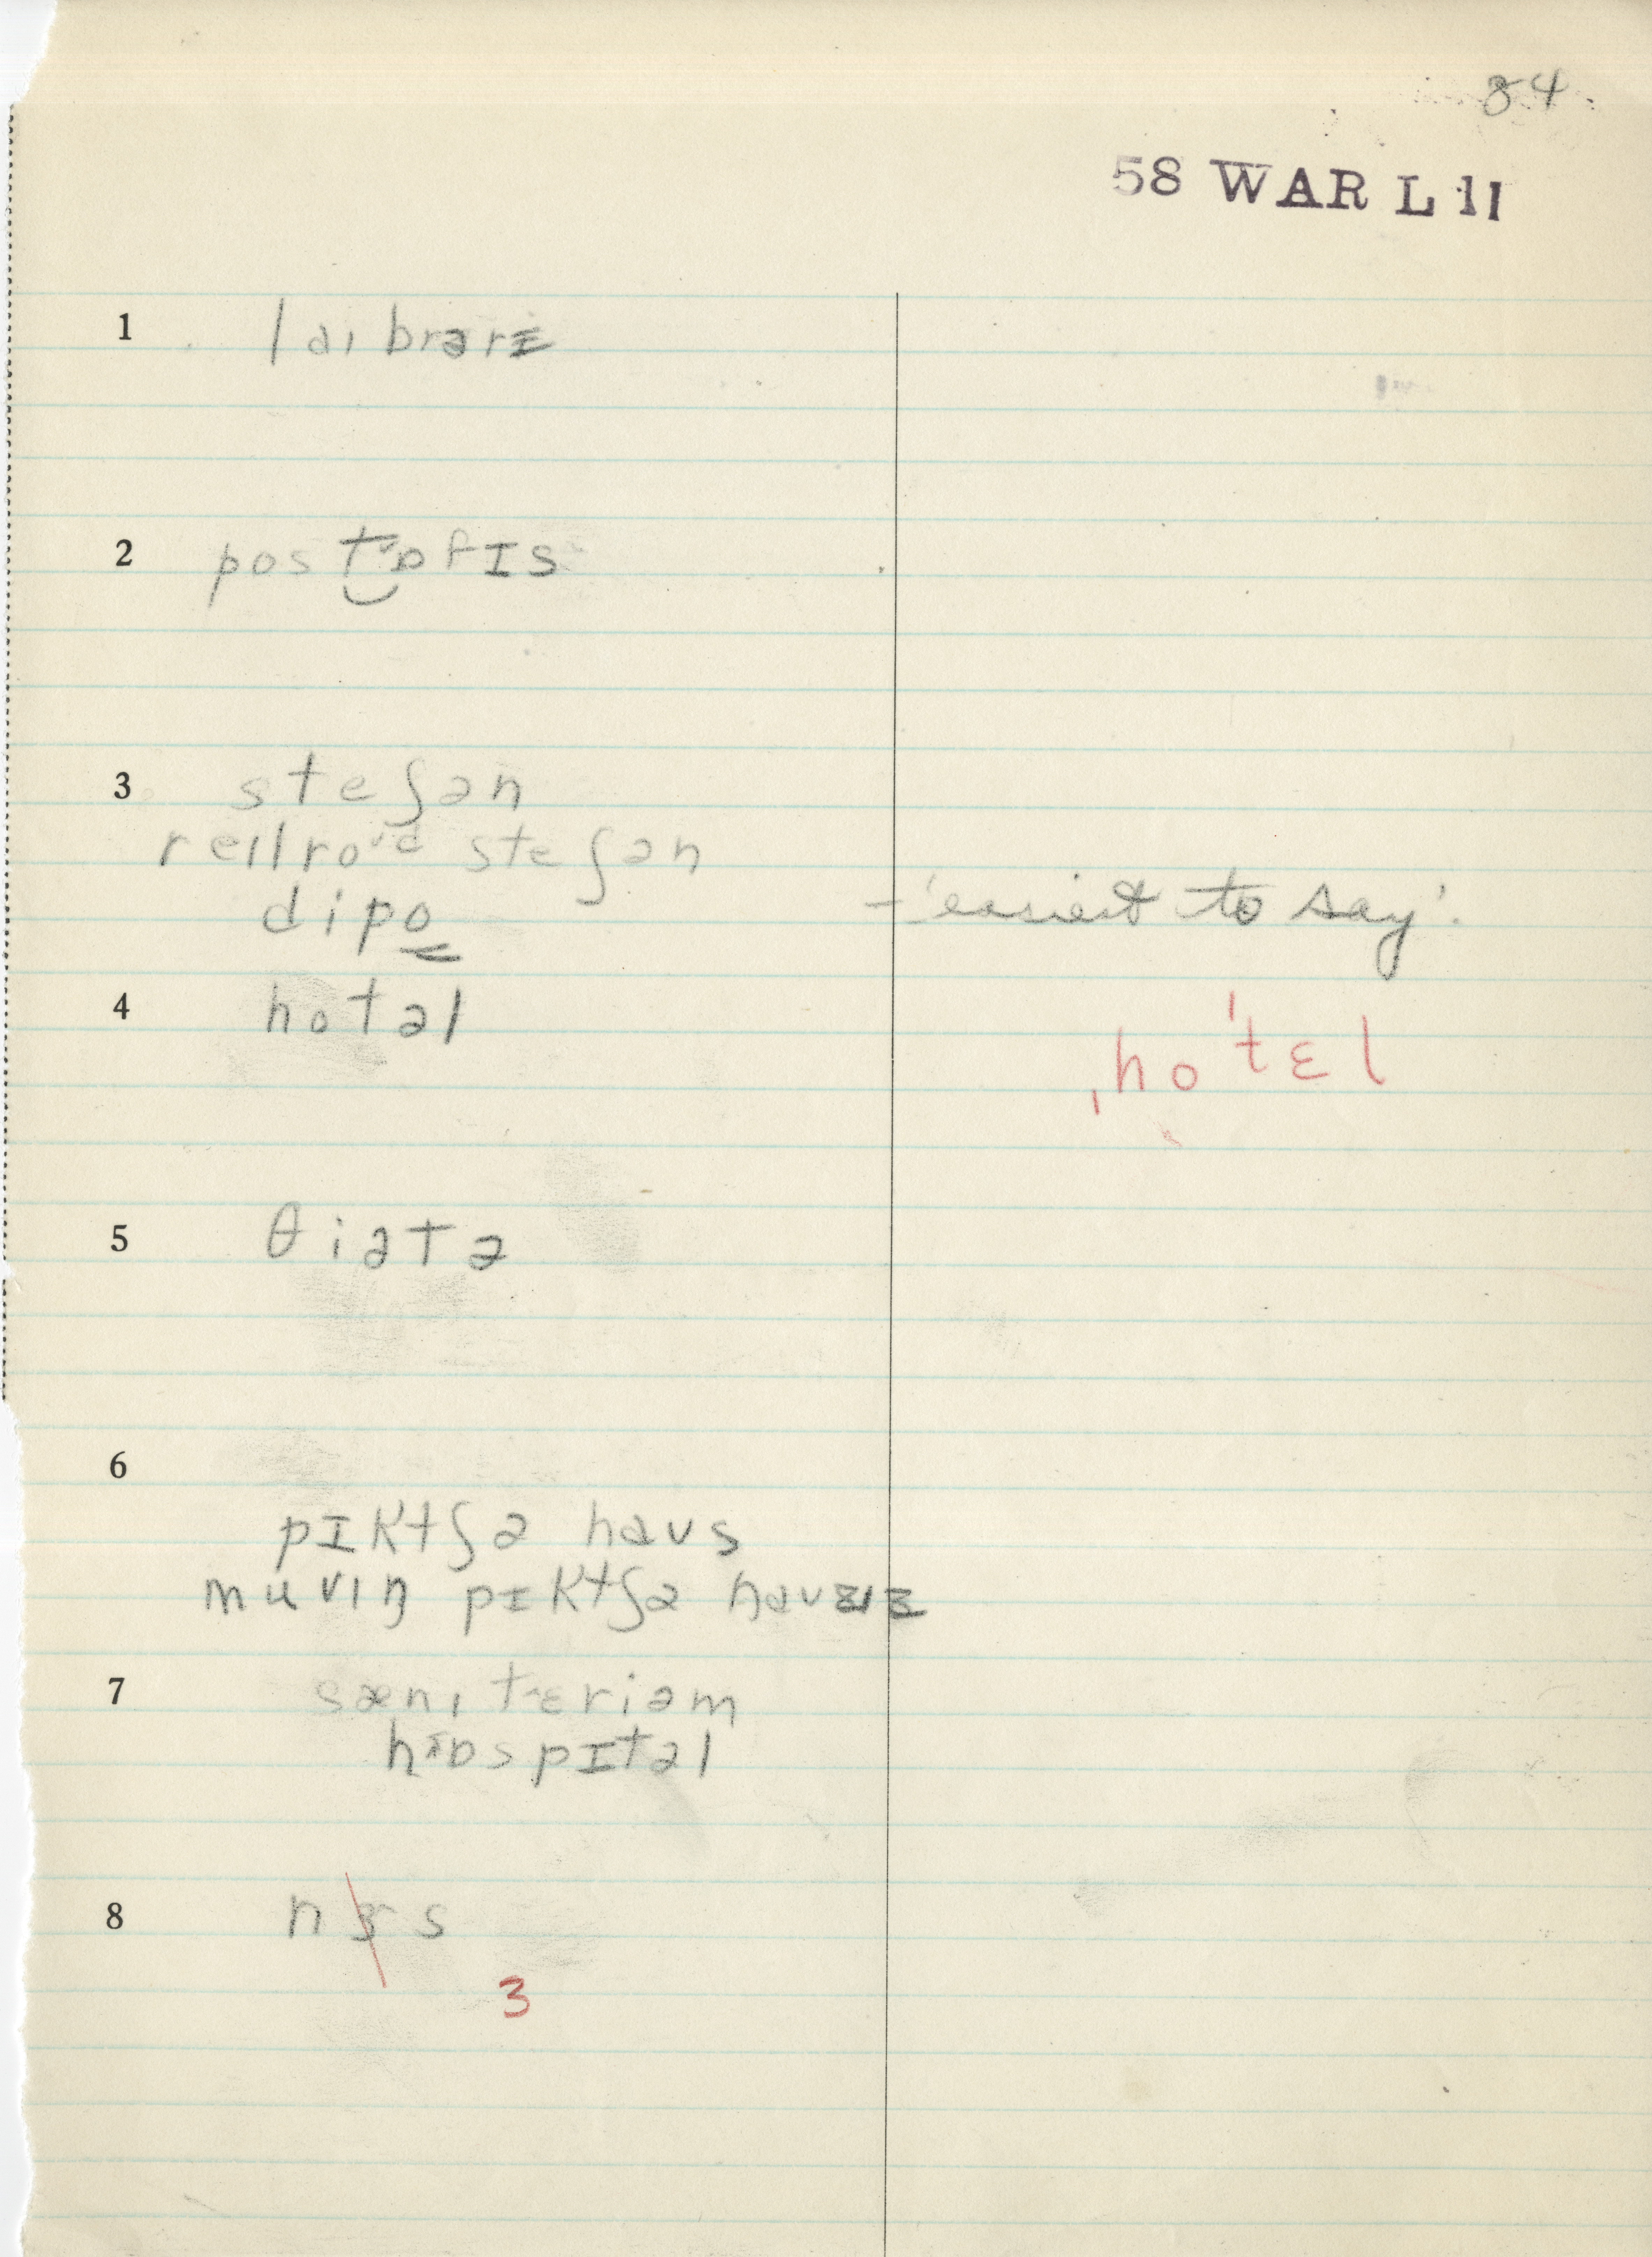 84.
58 WAR L 11
1 laɪbrərɪ
2 post‿ɒfɪs
3 steʃən
reɪlroʊd steʃən
dipo - 'easiest to say'.
4 hotəl
ˌhoˈtɛl
5 θiətə
6
pɪktʃə haʊs
muvɪŋ pɪktʃə haʊzɪz
7 sænɪtɛriəm
hɒspɪtəl
8 nɝs
ɜ